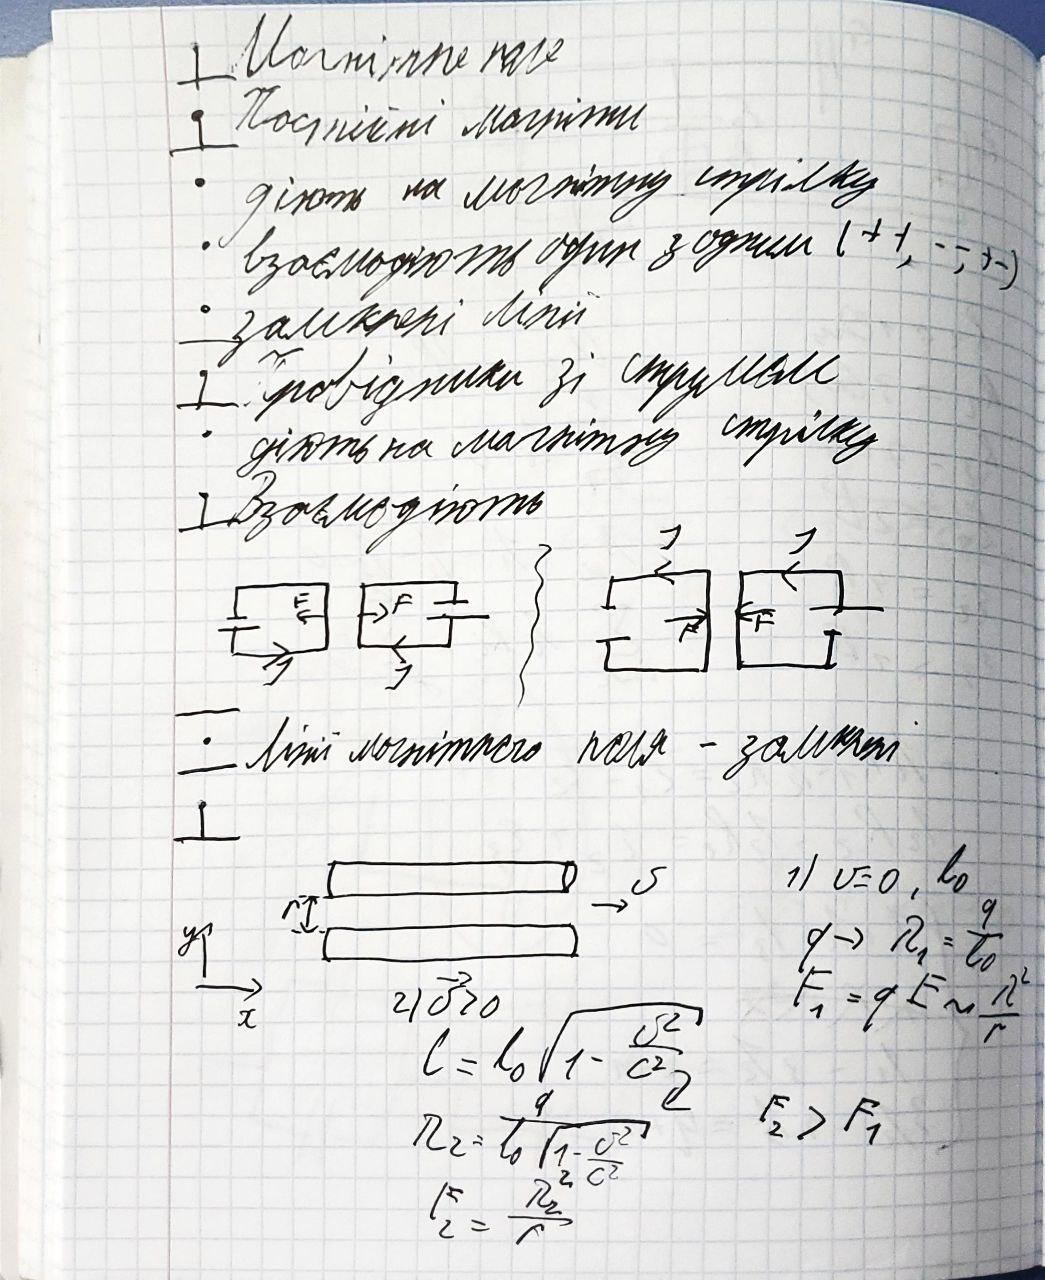 Магнітне поле
Постійні магніти
• діють на магнітну стрілку
• взаємодіють один з одним (++, --, +-)
• замкнені лінії
Провідники зі струмом
• діють на магнітну стрілку
Взаємодіють
I I
F F F F
I I
• Лінії магнітного поля - замкнені
r
υ
y
x
1) υ=0, l₀
q → λ₁ = q/l₀
F₁ = qE ~ λ²/r
2) υ⃗>0
l = l₀ √(1 - υ²/c²)
λ₂ = q/(l₀ √(1 - υ²/c²))
F₂ > F₁
F₂ = λ₂²/r